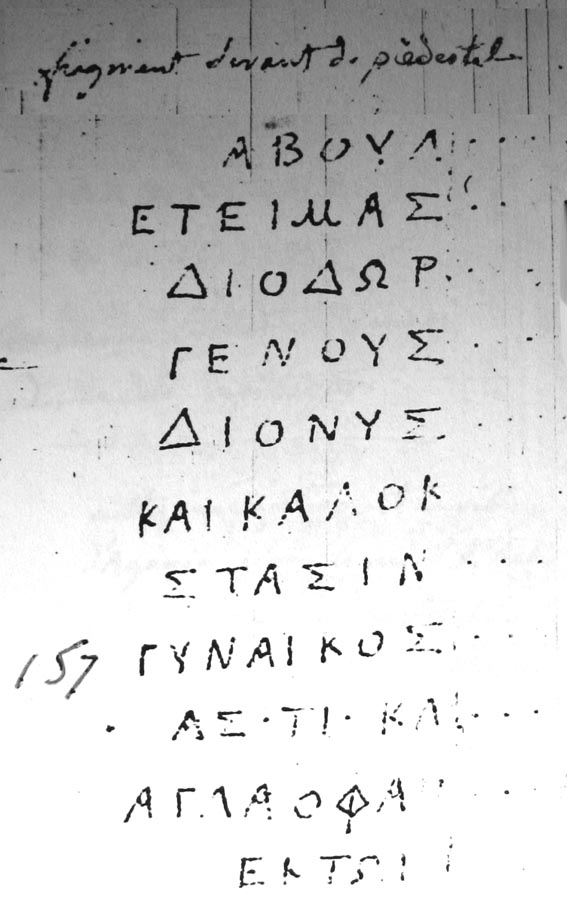 fragment devant de piédestal
ΑΒΟΥΛ....
ΕΤΕΙΜΑΣ...
ΔΙΟΔΩΡ....
ΓΕΝΟΥΣ...
ΔΙΟΝΥΣ...
ΚΑΙΚΑΛΟΚ
ΣΤΑΣΙΝ....
157 ΓΥΝΑΙΚΟΣ...
ΑΣ·ΤΙ·ΚΛ...
ΑΓΛΑΟΦΑ...
ΕΚΤΩΙ